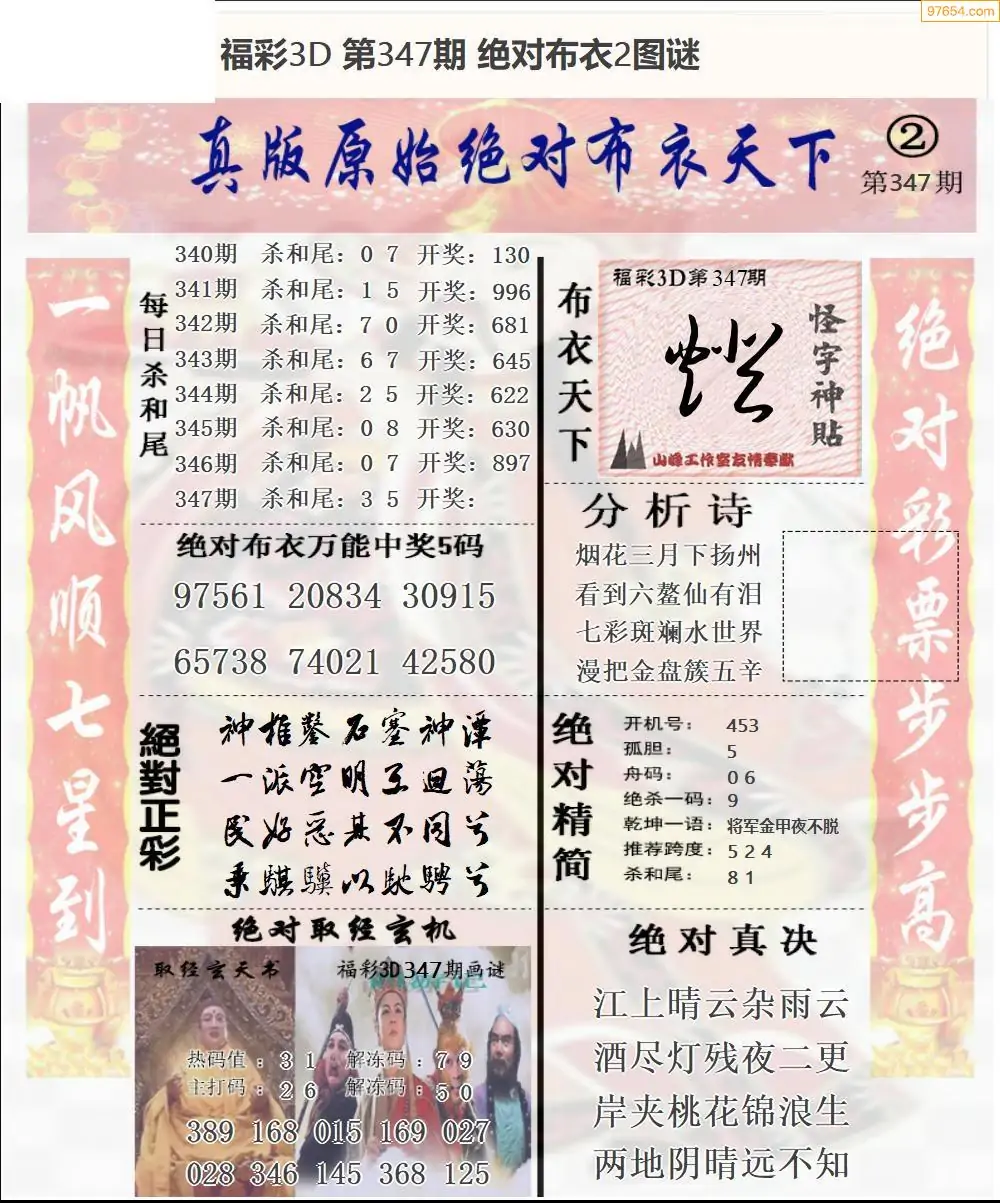 97654.com
福彩3D 第347期 绝对布衣2图谜
真版原始绝对布衣天下
②
第347期
一帆风顺七星到
每日杀和尾
340期 杀和尾：0 7 开奖：130
341期 杀和尾：1 5 开奖：996
342期 杀和尾：7 0 开奖：681
343期 杀和尾：6 7 开奖：645
344期 杀和尾：2 5 开奖：622
345期 杀和尾：0 8 开奖：630
346期 杀和尾：0 7 开奖：897
347期 杀和尾：3 5 开奖：
绝对布衣万能中奖5码
97561 20834 30915
65738 74021 42580
絕對正彩
神椎鑿石塞神潭
一派空明互迴荡
民好恶其不同兮
乘騏驥以馳騁兮
绝对取经玄机
取经玄天书
福彩3D347期画谜
热码值：3 1 解冻码：7 9
主打码：2 6 解冻码：5 0
389 168 015 169 027
028 346 145 368 125
布衣天下
福彩3D第347期
怪字神贴
山峰工作室友情奉献
分析诗
烟花三月下扬州
看到六鳌仙有泪
七彩斑斓水世界
漫把金盘簇五辛
绝对精简
开机号：453
孤胆：5
舟码：0 6
绝杀一码：9
乾坤一语：将军金甲夜不脱
推荐跨度：5 2 4
杀和尾：8 1
绝对真决
江上晴云杂雨云
酒尽灯残夜二更
岸夹桃花锦浪生
两地阴晴远不知
绝对彩票步步高